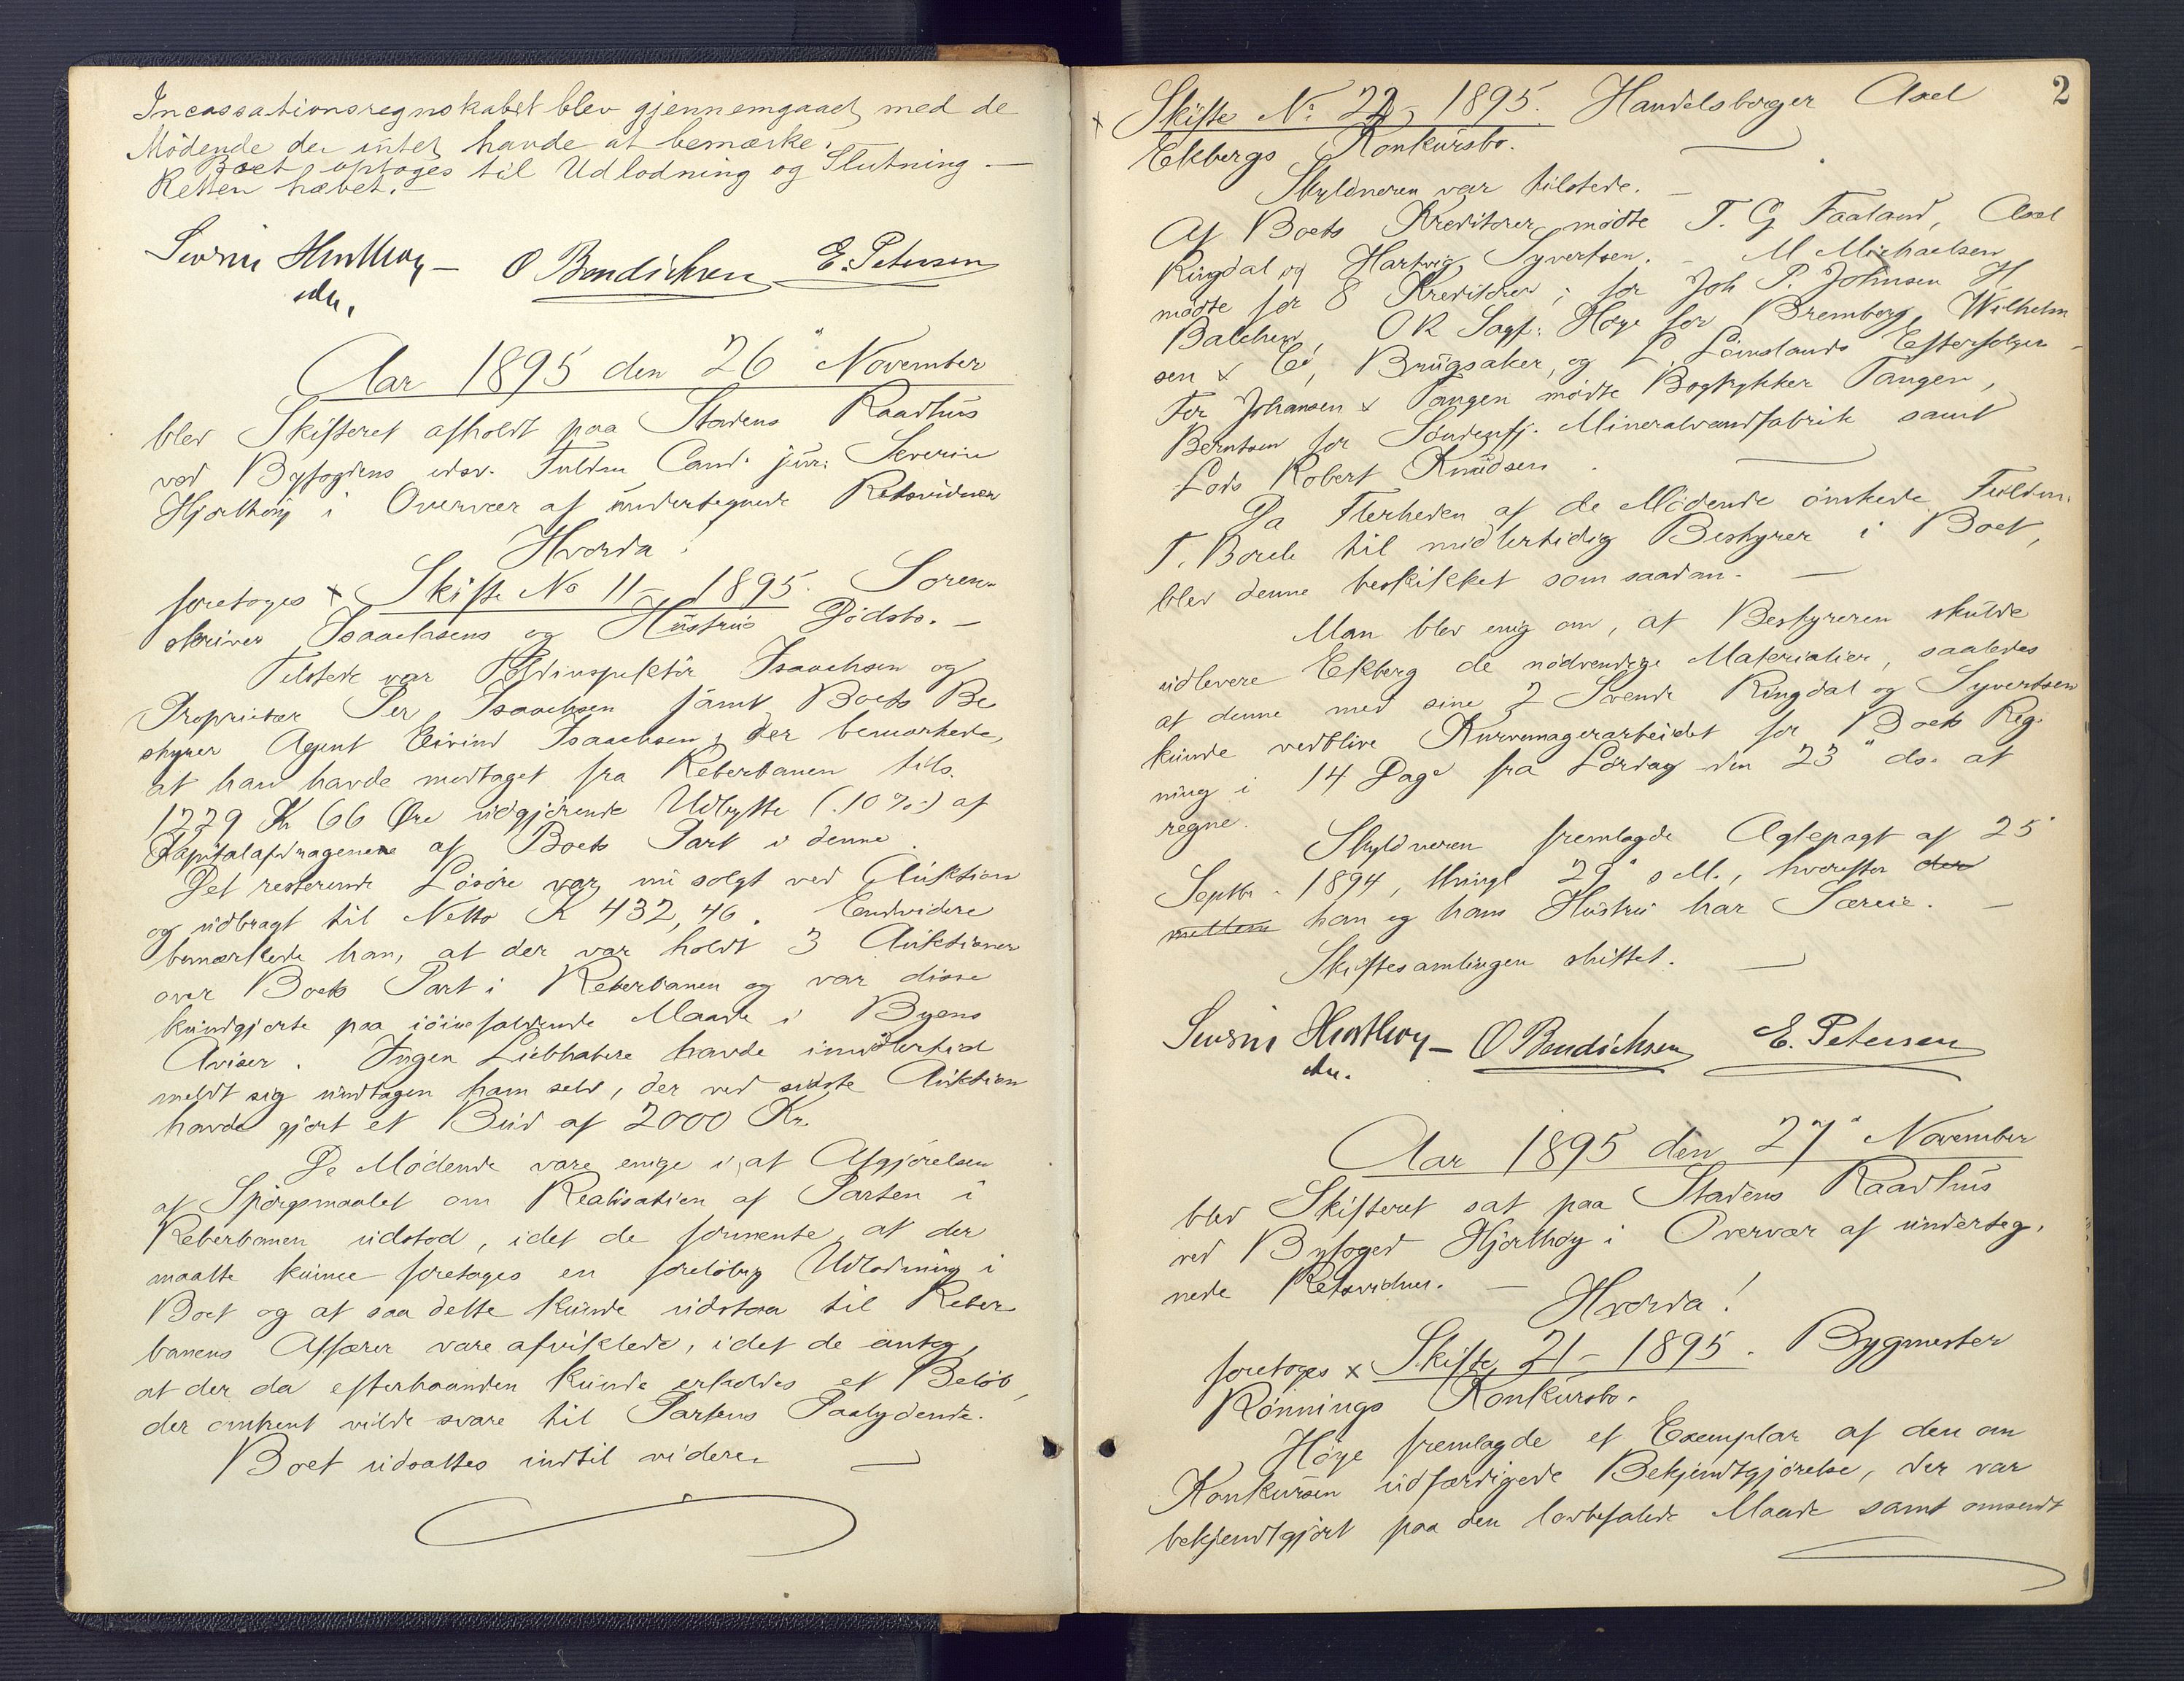 Incassationsregnskabet blev gjennemgaaet med de
Mødende der intet havde at bemærke.
Boet optoges til Udlodning og Slutning. —
Retten hævet. —
Severin Hjorthøy — O Bendichsen E. Petersen
edsv.
Aar 1895 den 26" November
blev Skifteret afholdt paa Stadens Raadhus
ved Byfogdens edsv. Fuldm. Cand. jur. Severin
Hjorthøy i Overvær af undertegnede Retsvidner
Hvorda!
foretoges x Skifte No 11 – 1895. Soren-
skriver Isaachsens og Hustrus Dødsbo. —
Tilstede var Toldinspektør Isaachsen og
Proprietær Per Isaachsen samt Boets Be
styrer Agent Eivind Isaachsen, der bemærkede,
at han havde modtaget fra Reberbanen tils.
1229 Kr 66 Øre udgjørende Udbytte (10%) af
Kapitalafdragene af Boets Part i denne.
Det resterende Løsøre var nu solgt ved Auktion
og udbragt til Netto K 432,46. Endvidere
bemærkede han, at der var holdt 3 Auktioner
over Boets Part i Reberbanen og var disse
kundgjorte paa iøinefaldende Maade i Byens
Aviser. Ingen Liebhabere havde imidlertid
meldt sig undtagen ham selv, der ved sidste Auktion
havde gjort et Bud af 2000 Kr.
De Mødende vare enige i, at Afgjørelsen
af Spørgsmaalet om Realisation af Parten i
Reberbanen udstod, idet de formente at der
maatte kunne foretages en foreløbig Udlodning i
Boet og at saa dette kunde udstaa til Reber
banens Affærer vare afviklede, idet de antog,
at der da efterhaanden kunde erholdes et Beløb,
der omtrent vilde svare til Partens Paalydende.
Boet udsattes indtil videre. —
2
x Skifte No 22 – 1895. Handelsborger Axel
Ekbergs Konkursbo. —
Skyldneren var tilstede. —
Af Boets Kreditorer mødte T. G. Faaland, Axel
Ringdal og Hartvig Syvertsen. — M Michaelsen
mødte for 8 Kreditorer; for Joh P. Johnsen H
Balchen, OR Sagf. Høye for Bremberg, Wilhelm
sen & Co, Brugsaker, og L. Lömslands Efterfølger –
For Johansen & Tangen mødte Bogtrykker Tangen,
Berntsen for Söndenfj. Mineralvandfabrik samt
Lods Robert Knudsen. —
Da Flerheden af de Mødende ønskede Fuldm.
T. Borch til midlertidig Bestyrer i Boet,
blev denne beskikket som saadan. —
Man blev enig om, at Bestyreren skulde
udlevere Ekberg de nødvendige Materialier, saaledes
at denne med sine 2 Svende Ringdal og Syvertsen
kunde vedblive Kurvemagerarbeidet for Boets Reg-
ning i 14 Dage fra Lørdag den 23" ds. at
regne.
Skyldneren fremlagde Ægtepagt af 25
Septbr. 1894, thingl 29" s M., hvorefter der
mellem han og hans Hustru har Særeie. —
Skiftesamlingen sluttet. —
Severin Hjorthøy — O Bendichsen E. Petersen
edsv.
Aar 1895 den 27" November
blev Skifteret sat paa Stadens Raadhus
ved Byfoged Hjorthøy i Overvær af underteg,
nede Retsvidner. —
Hvorda!
foretoges x Skifte 21 – 1895. Bygmester
Rønnings Konkursbo.
Høye fremlagde et Exemplar af den om
Konkursen udfærdigede Bekjendtgjørelse, der var
bekjendtgjort paa den lovbefalede Maade samt omsendt